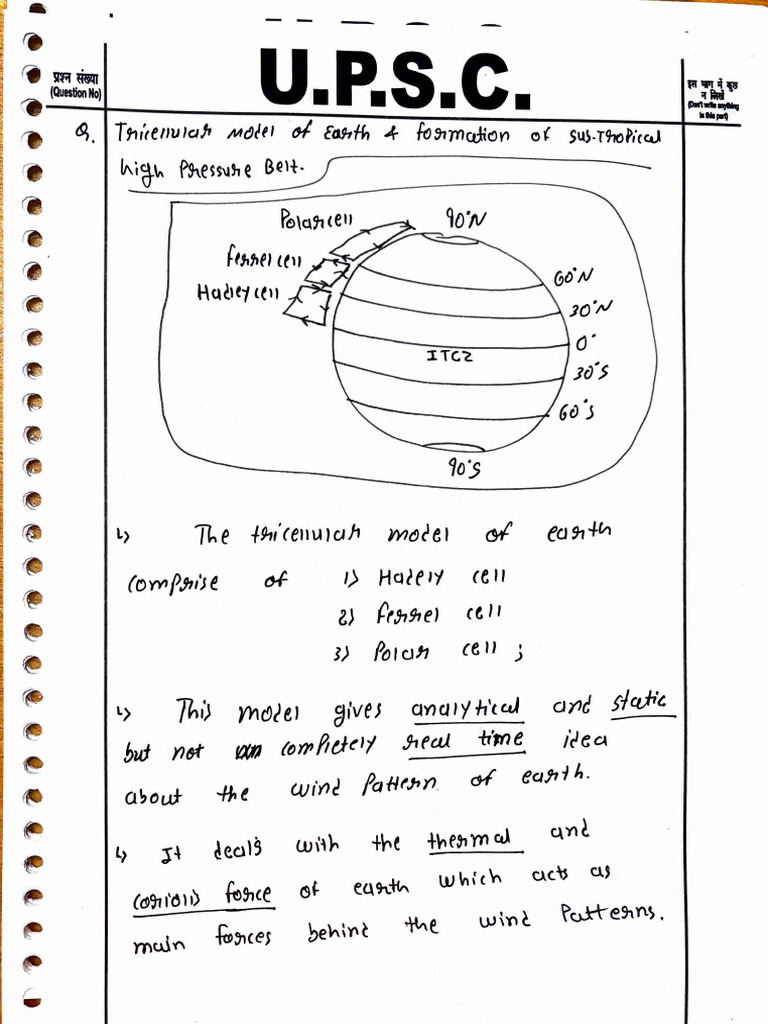 U.P.S.C.
प्रश्न संख्या
(Question No)
इस भाग में कुछ
न लिखें
(Don't write anything
in this part)
Q. Tricellular model of Earth & formation of sub-Tropical
high Pressure Belt.
Polar cell
90°N
Ferrel cell
60°N
Hadley cell
30°N
0°
ITCZ
30°S
60°S
90°S
↳ The tricellular model of earth
comprise of 1) Hadely cell
2) Ferrel cell
3) Polar cell ;
↳ This model gives analytical and static
but not completely real time idea
about the wind Pattern of earth.
↳ It deals with the thermal and
force of earth which acts as
main forces behind the wind Patterns.